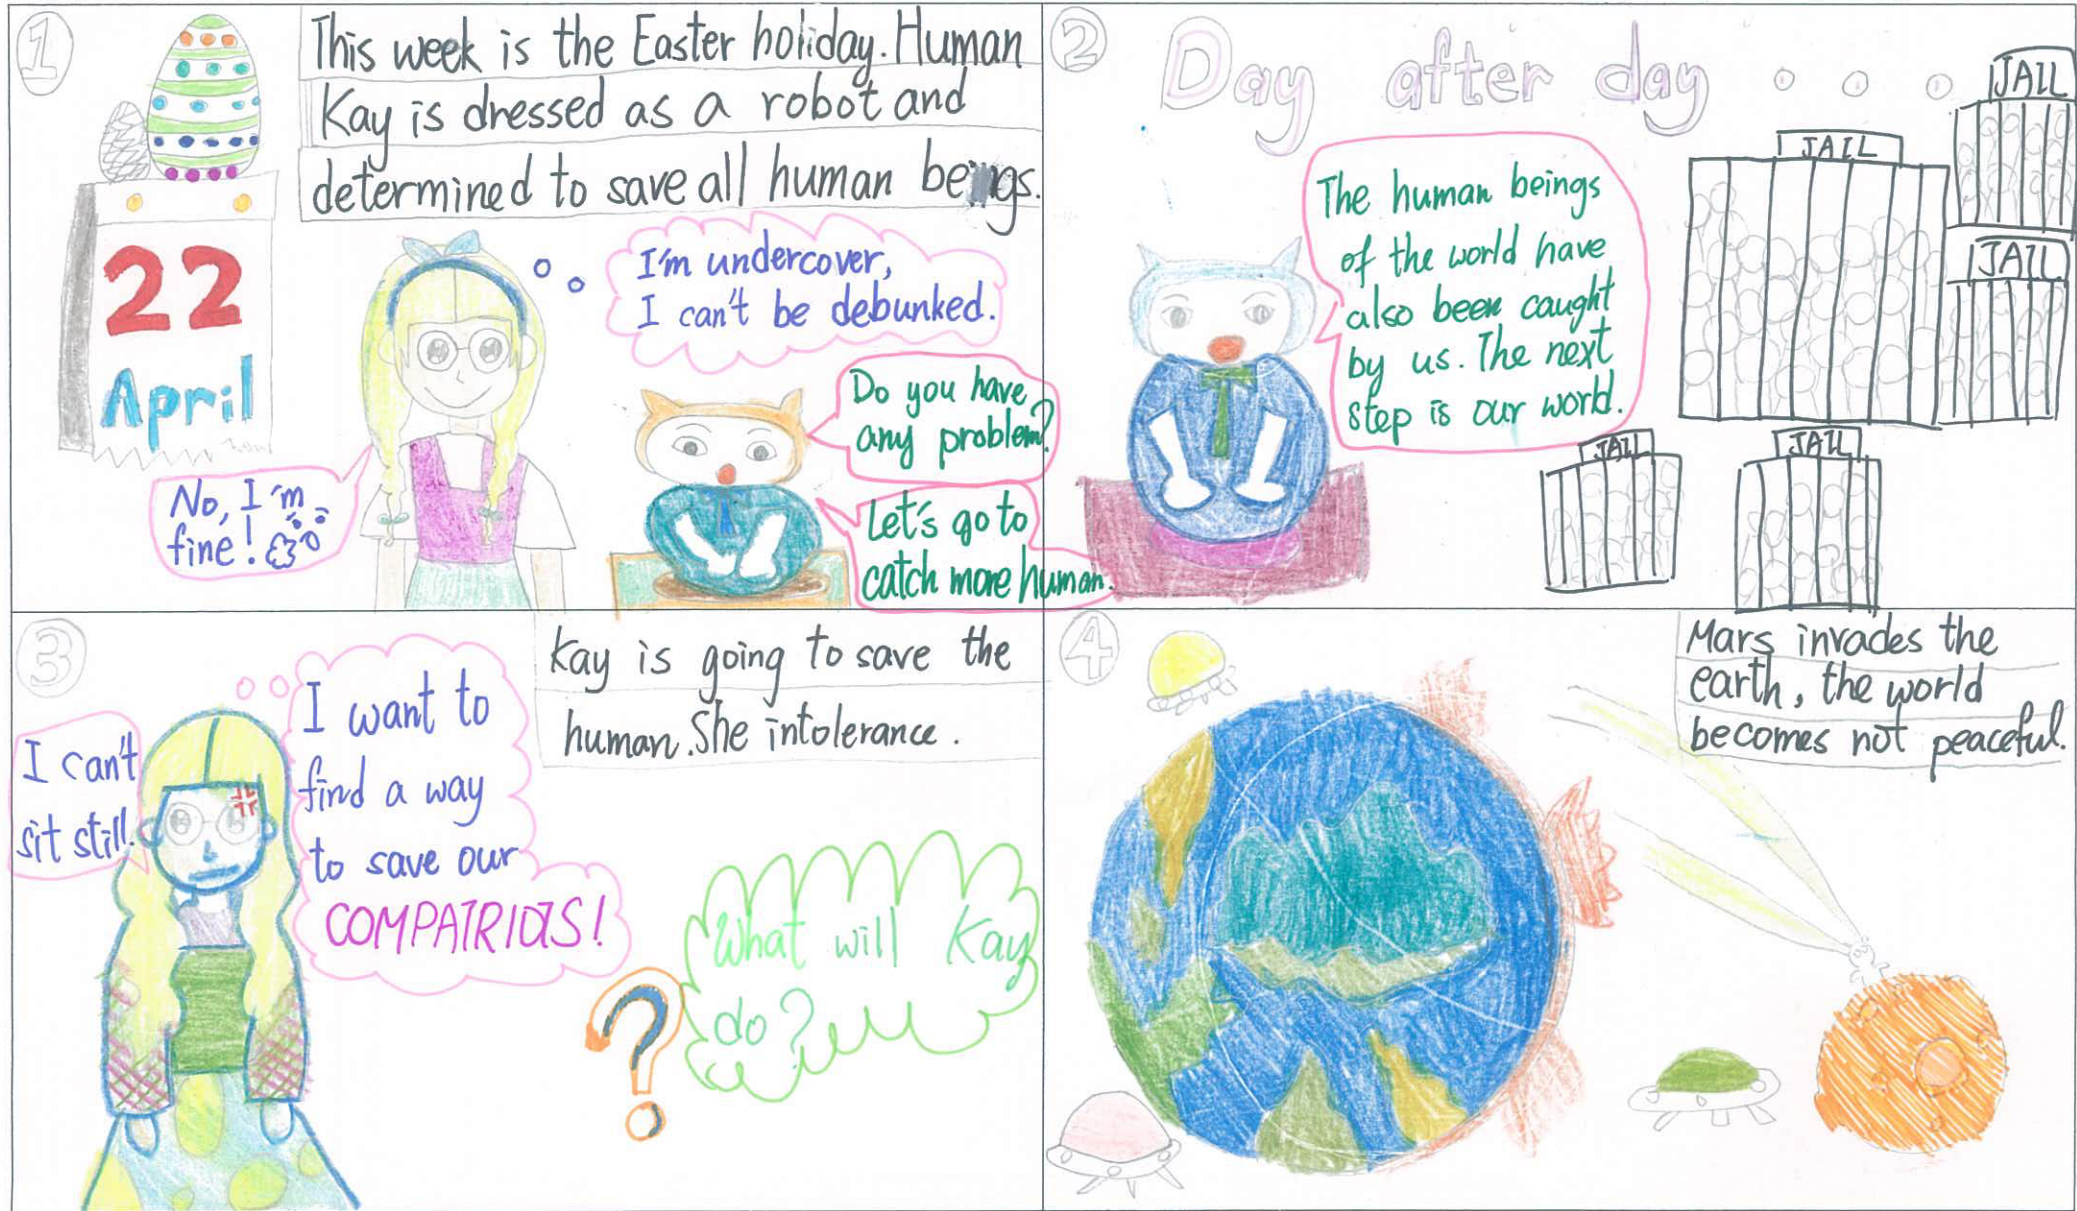 1
This week is the Easter holiday. Human
Kay is dressed as a robot and
determined to save all human beings.
22
April
I'm undercover,
I can't be debunked.
Do you have
any problem?
No, I'm
fine!
Let's go to
catch more human.
2
Day after day . . .
The human beings
of the world have
also been caught
by us. The next
step is our world.
JAIL
JAIL
JAIL
JAIL
JAIL
3
Kay is going to save the
human. She intolerance.
I can't
sit still.
I want to
find a way
to save our
COMPATRIOTS!
?
What will Kay
do?
4
Mars invades the
earth, the world
becomes not peaceful.